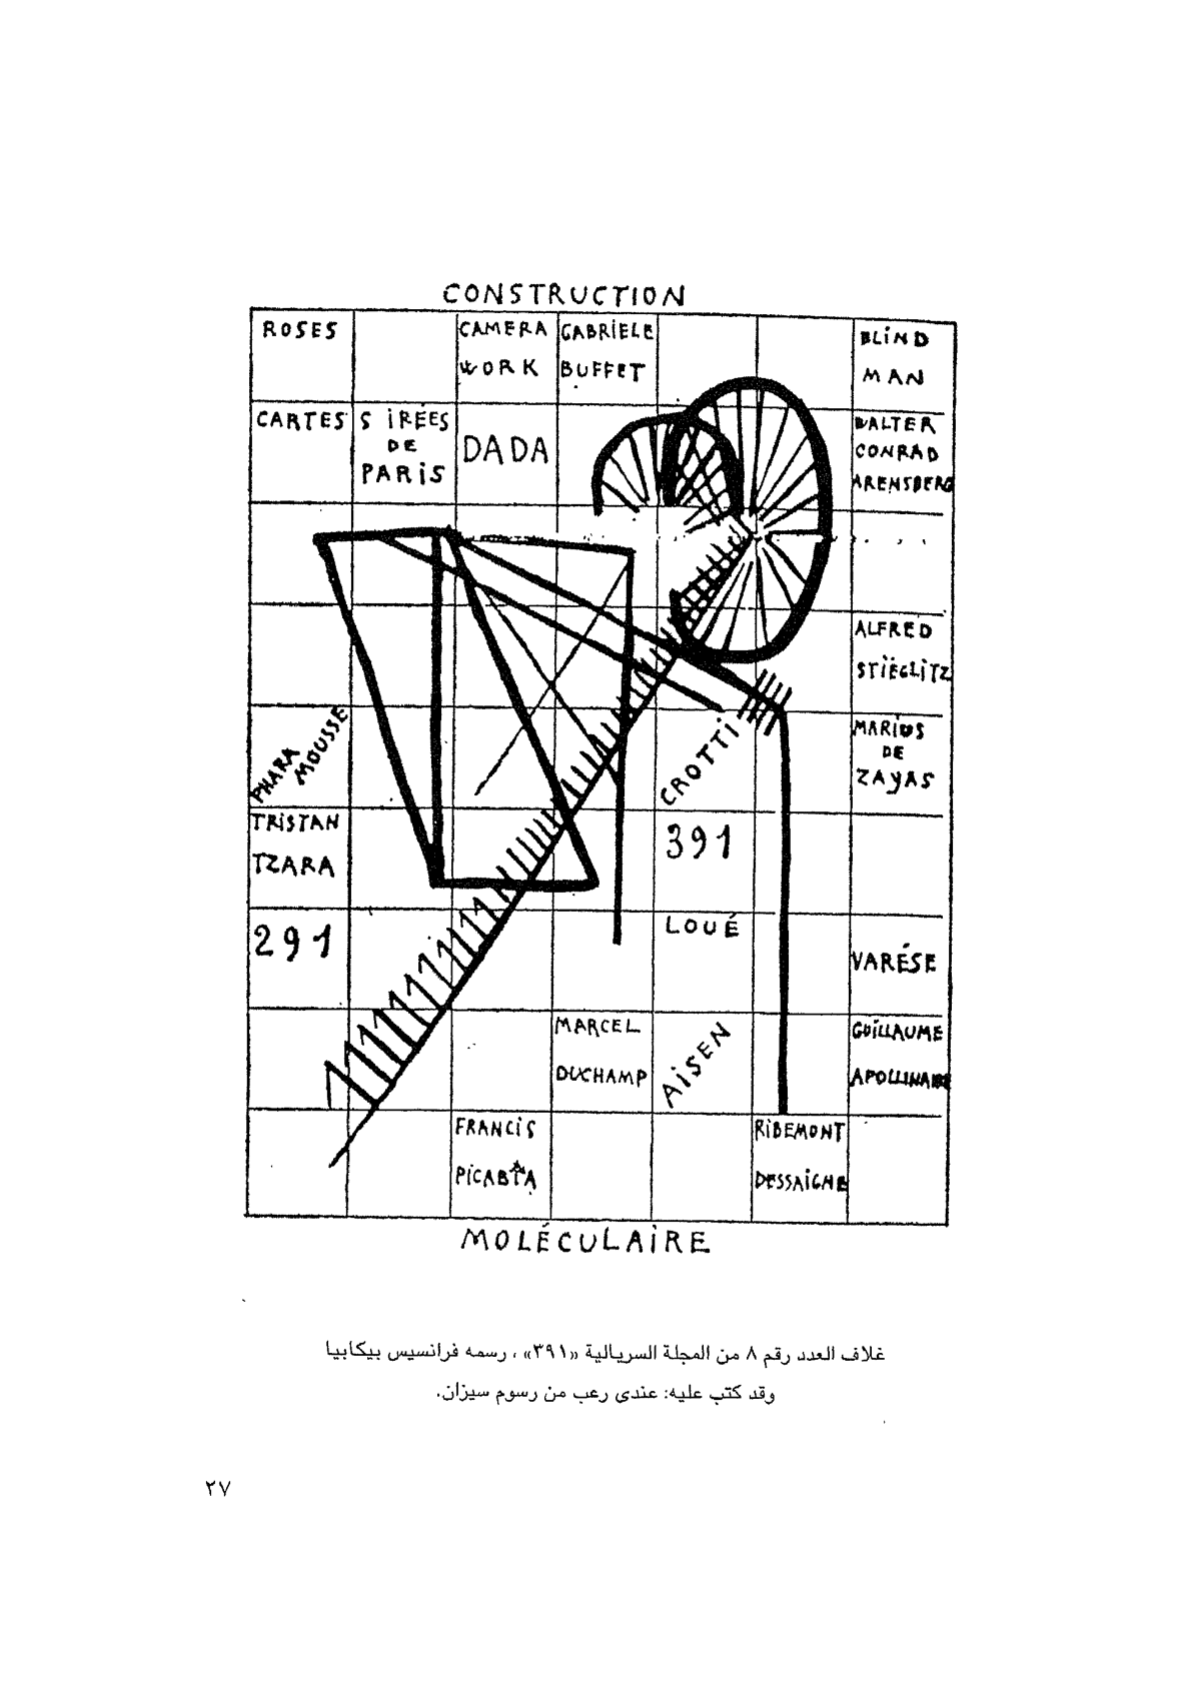 CONSTRUCTION
ROSES
CAMERA
WORK
GABRIELE
BUFFET
BLIND
MAN
CARTES
S IRÉES
DE
PARIS
DADA
WALTER
CONRAD
ARENSBERG
ALFRED
STIËGLITZ
PHARA
MOUSSE
CROTTI
MARIUS
DE
ZAYAS
TRISTAN
TZARA
391
291
LOUÉ
VARÉSE
MARCEL
DUCHAMP
AISEN
GUILLAUME
APOLLINAIRE
FRANCIS
PICABIA
RIBEMONT
DESSAIGNE
MOLÉCULAIRE
غلاف العدد رقم ٨ من المجلة السريالية «٣٩١»، رسمه فرانسيس بيكابيا
وقد كتب عليه: عندي رعب من رسوم سيزان.
٢٧